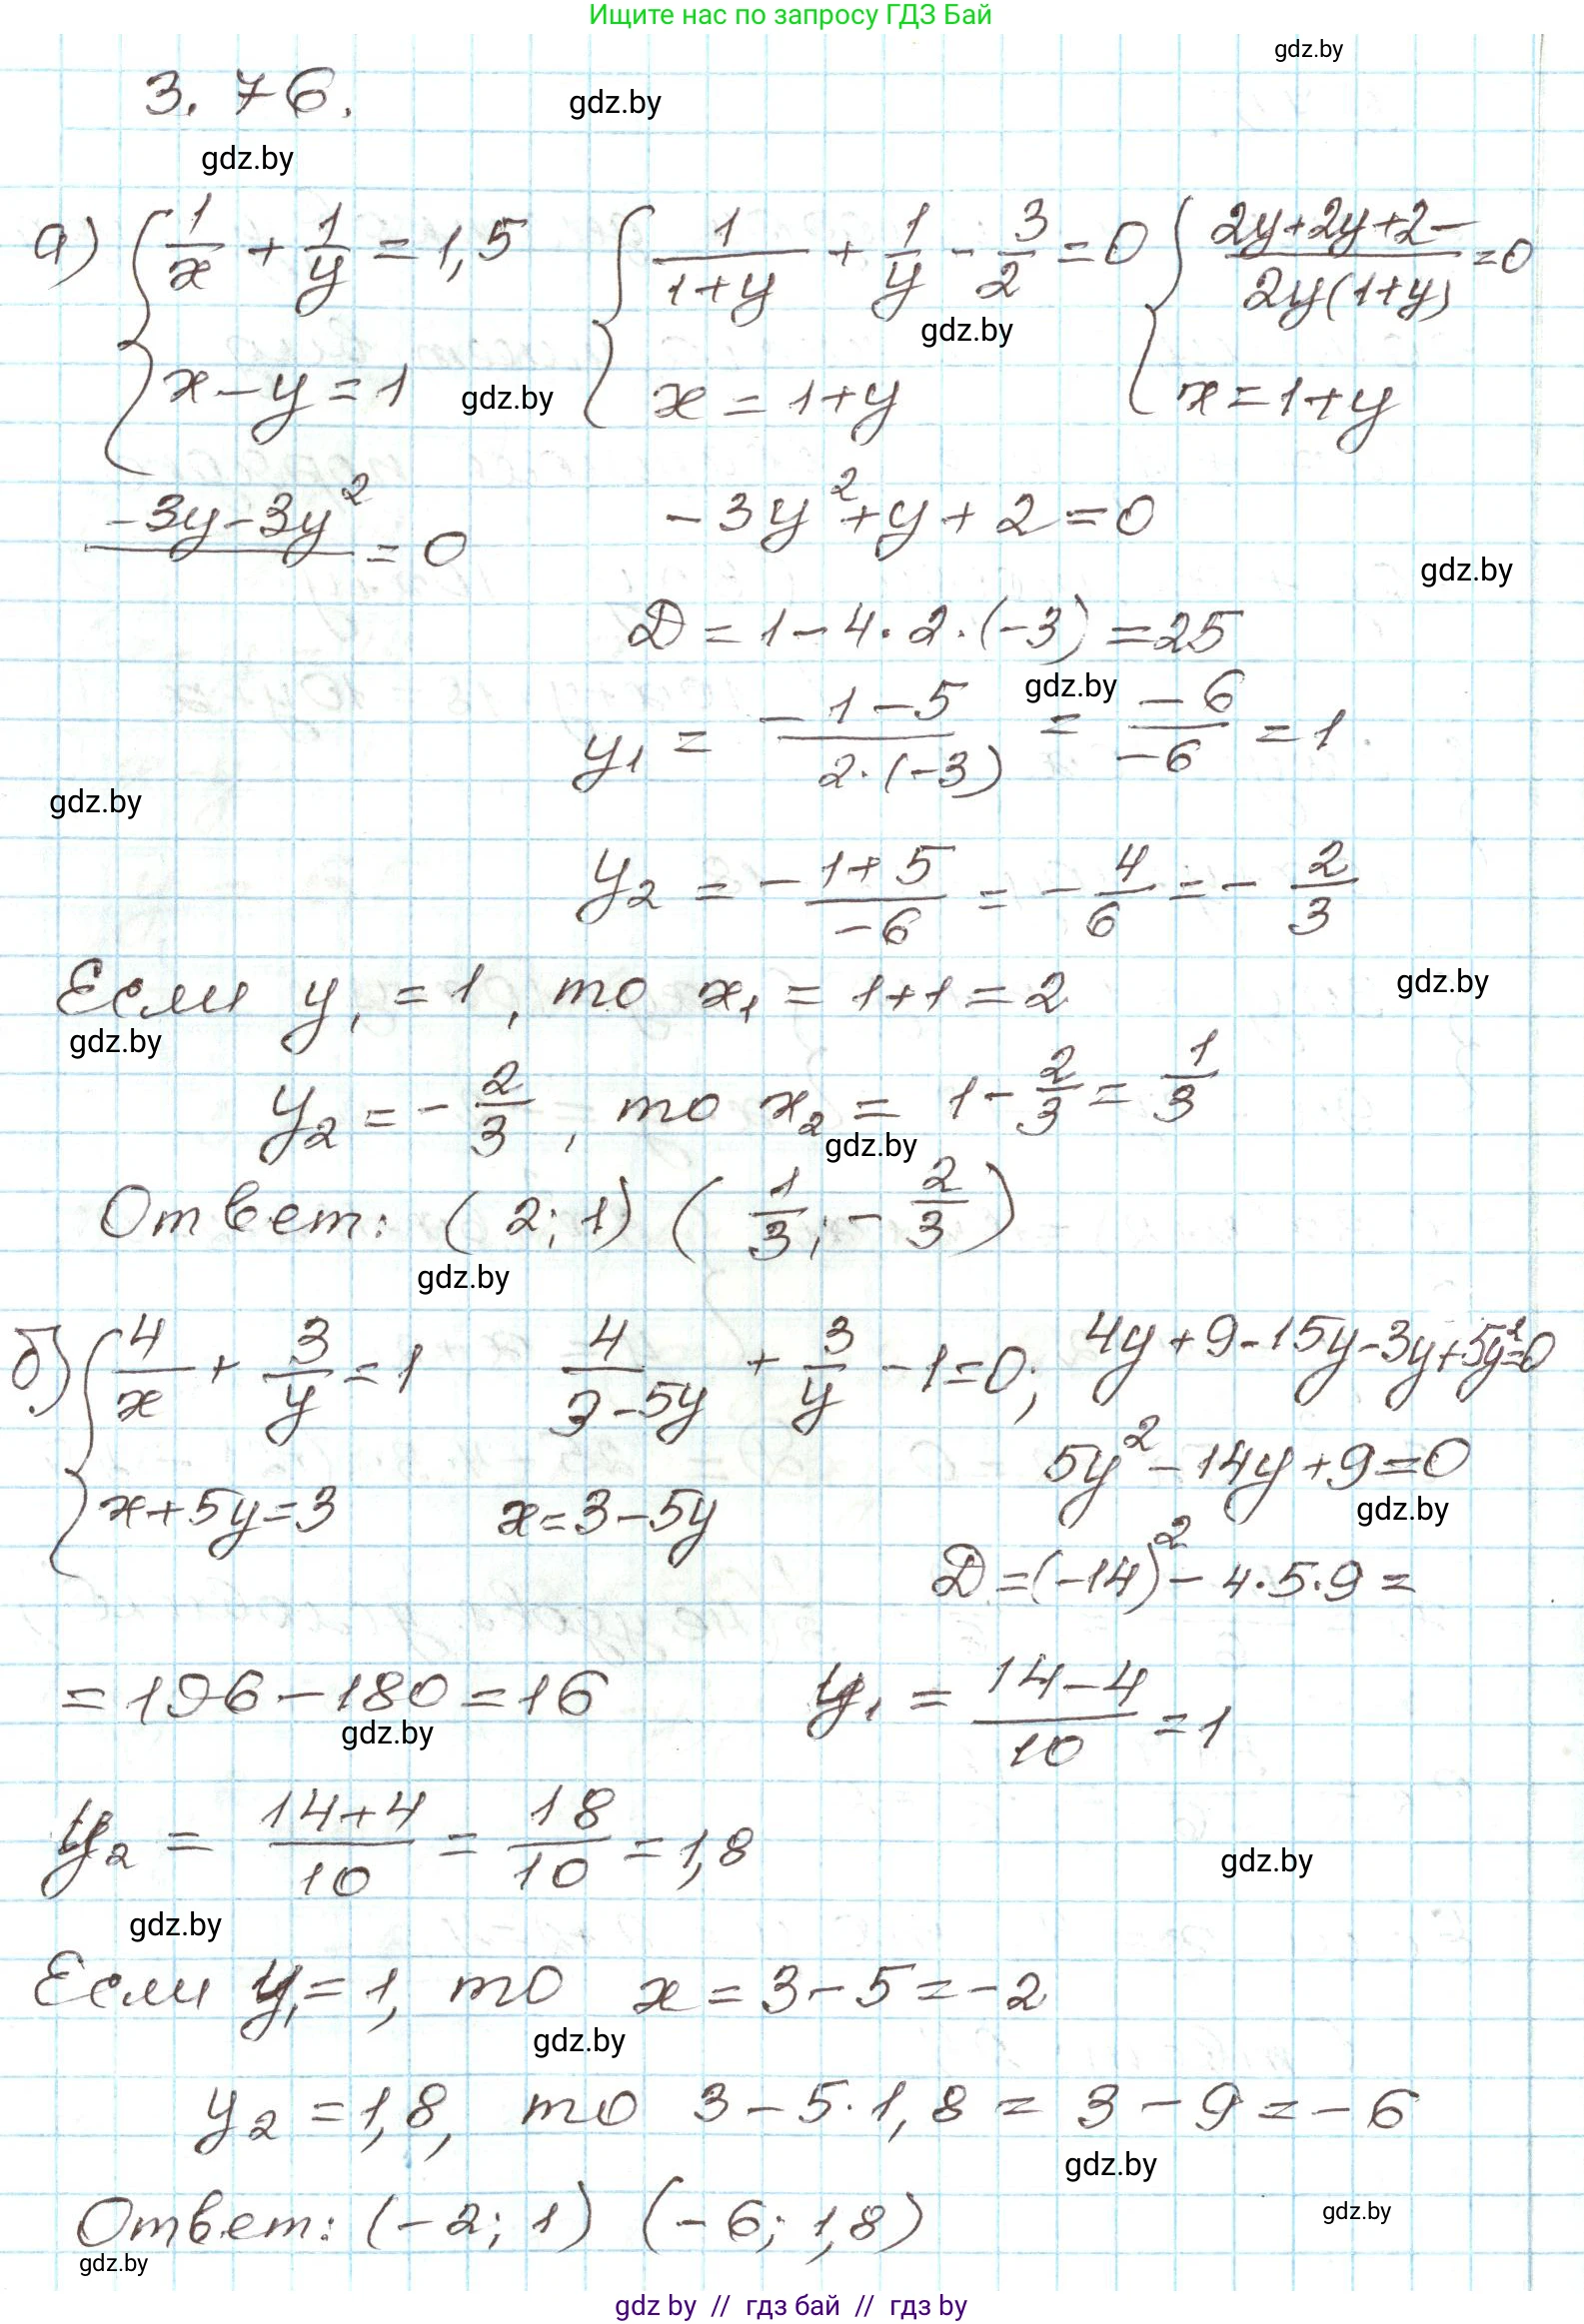 Ищите нас по запросу ГДЗ Бай
gdz.by
3.76.
gdz.by
gdz.by
а) { 1/x + 1/y = 1,5 { 1/(1+y) + 1/y - 3/2 = 0 { (2y+2y+2-)/(2y(1+y)) = 0
gdz.by
x-y=1 gdz.by x=1+y x=1+y
-3y-3y² = 0 -3y²+y+2=0
gdz.by
D=1-4·2·(-3)=25
gdz.by
y₁ = (-1-5)/(2·(-3)) = -6/-6 = 1
gdz.by
y₂ = -(1+5)/-6 = -4/6 = -2/3
Если y₁=1, то x₁=1+1=2
gdz.by
gdz.by
y₂=-2/3, то x₂=1-2/3=1/3
gdz.by
Ответ: (2;1) (1/3;-2/3)
gdz.by
б) { 4/x + 3/y = 1 4/(3-5y) + 3/y - 1=0; 4y+9-15y-3y+5y²=0
5y²-14y+9=0
gdz.by
x+5y=3 x=3-5y
D=(-14)²-4·5·9=
=196-180=16 y₁ = (14-4)/10 = 1
gdz.by
y₂ = (14+4)/10 = 18/10 = 1,8
gdz.by
gdz.by
Если y₁=1, то x=3-5=-2
gdz.by
y₂=1,8, то 3-5·1,8=3-9=-6
gdz.by
Ответ: (-2;1) (-6;1,8)
gdz.by
gdz.by
gdz by // гдз бай // гдз by